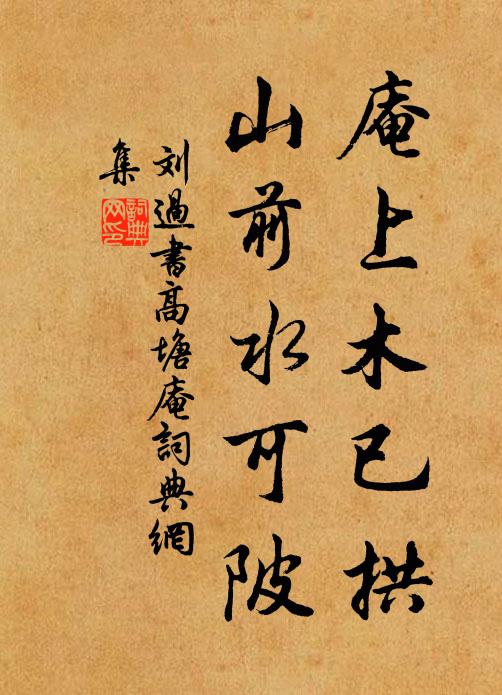 庵上木已拱
山前水可陂
刘過書高塘庵詞典網
集
詞典網印